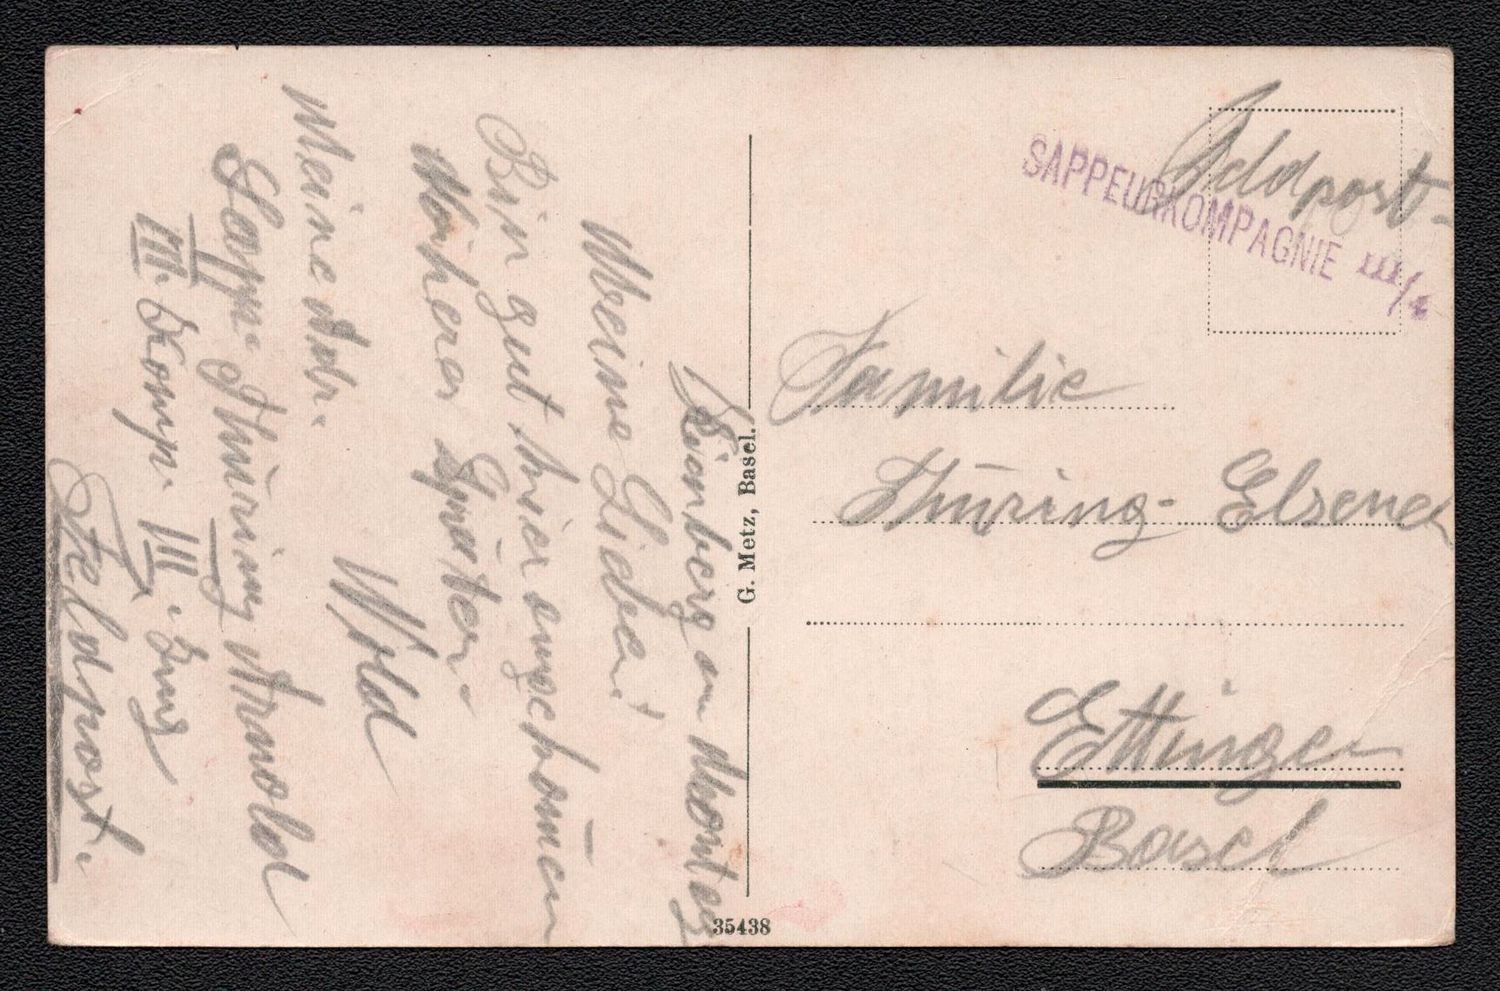 Feldpost.
SAPPEURKOMPAGNIE III/4
Familie
Thüring- Elsener
Ettingen
Basel
G. Metz, Basel.
35438
am Montag
Meine Lieben!
Bin gut hier angekom̄en
Näheres später.
Nold
Meine Adr.
Sapp. Thüring Arnold
III. Komp. III.
Feldpost.